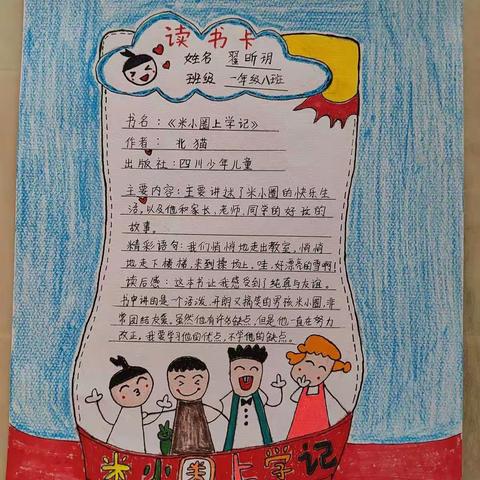 读书卡
姓名 翟昕玥
班级 一年级八班
书名：《米小圈上学记》
作者： 北猫
出版社：四川少年儿童
主要内容：主要讲述了米小圈的快乐生
活，以及他和家长、老师、同学的好玩的
故事。
精彩语句：我们悄悄地走出教室，悄悄
地走下楼梯，来到操场上，哇，好漂亮的雪啊！
读后感：这本书让我感受到了纯真与友谊。
书中讲的是一个活泼、开朗又搞笑的男孩米小圈，非
常团结友爱。虽然他有许多缺点，但是他一直在努力
改正，我要学习他的优点，不学他的缺点。
米小圈上学记